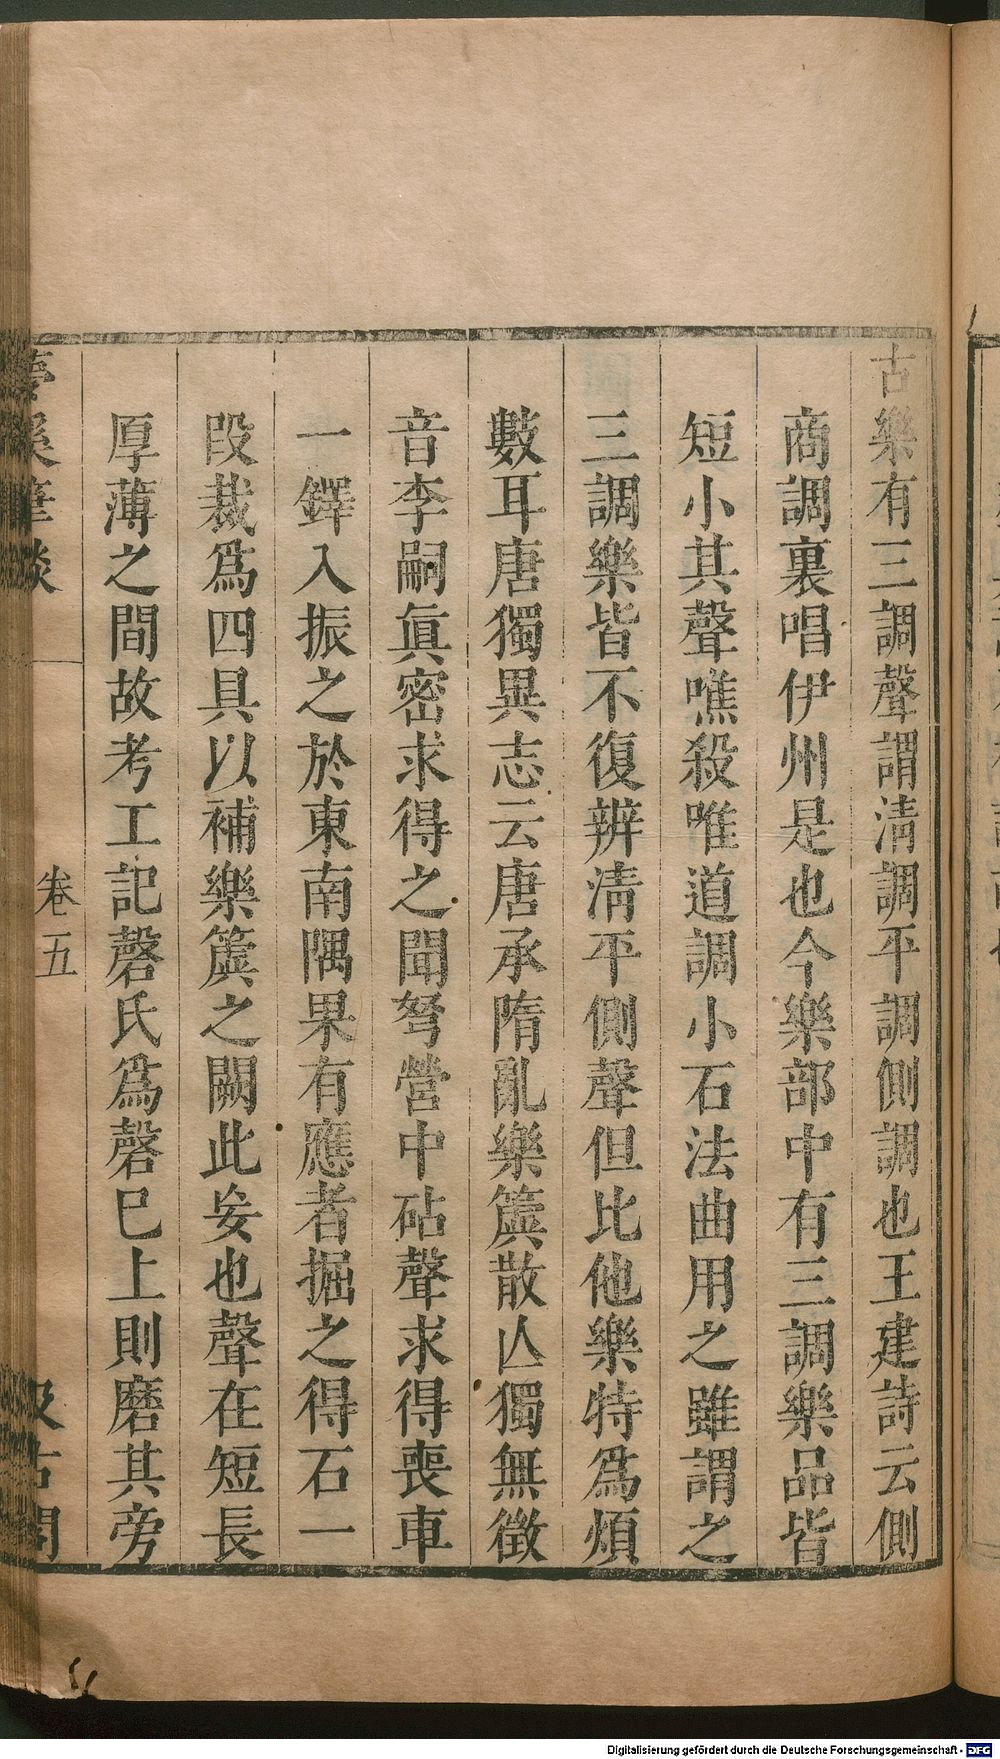 古樂有三調聲謂淸調平調側調也王建詩云側
商調裏唱伊州是也今樂部中有三調樂品皆
短小其聲噍殺唯道調小石法曲用之雖謂之
三調樂皆不復辨淸平側聲但比他樂特爲煩
數耳唐獨異志云唐承隋亂樂簴散亾獨無徵
音李嗣眞密求得之聞弩營中砧聲求得喪車
一鐸入振之於東南隅果有應者掘之得石一
段裁爲四具以補樂簴之闕此妄也聲在短長
厚薄之間故考工記磬氏爲磬已上則磨其旁
夢溪筆談
卷五
汲古閣
Digitalisierung gefördert durch die Deutsche Forschungsgemeinschaft - DFG